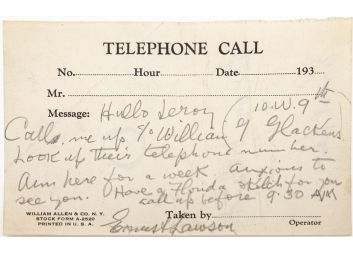 TELEPHONE CALL
No. Hour Date 193
Mr.
Message: Hello Leroy (10 W. 9th
Call me up % William J Glackens
Look up their telephone number.
Am here for a week anxious to
see you. Have a Florida sketch for you
call up before 9:30 A/M
WILLIAM ALLEN & CO. N.Y.
STOCK FORM A-2520
PRINTED IN U.S.A.
Taken by Operator
Ernest Lawson